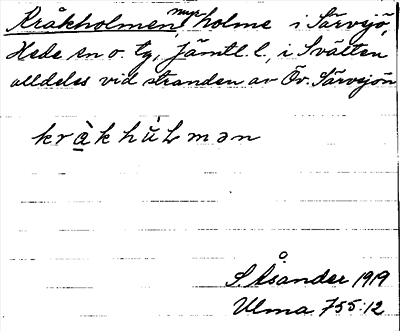 Kråkholmen, myrholme i Särvsjö,
Hede sn o. tg, Jämtl. l., i Svälten
alldeles vid stranden av Öv. Särvsjön
kråkhùLmən
S. Åsander 1919
Ulma 755:12